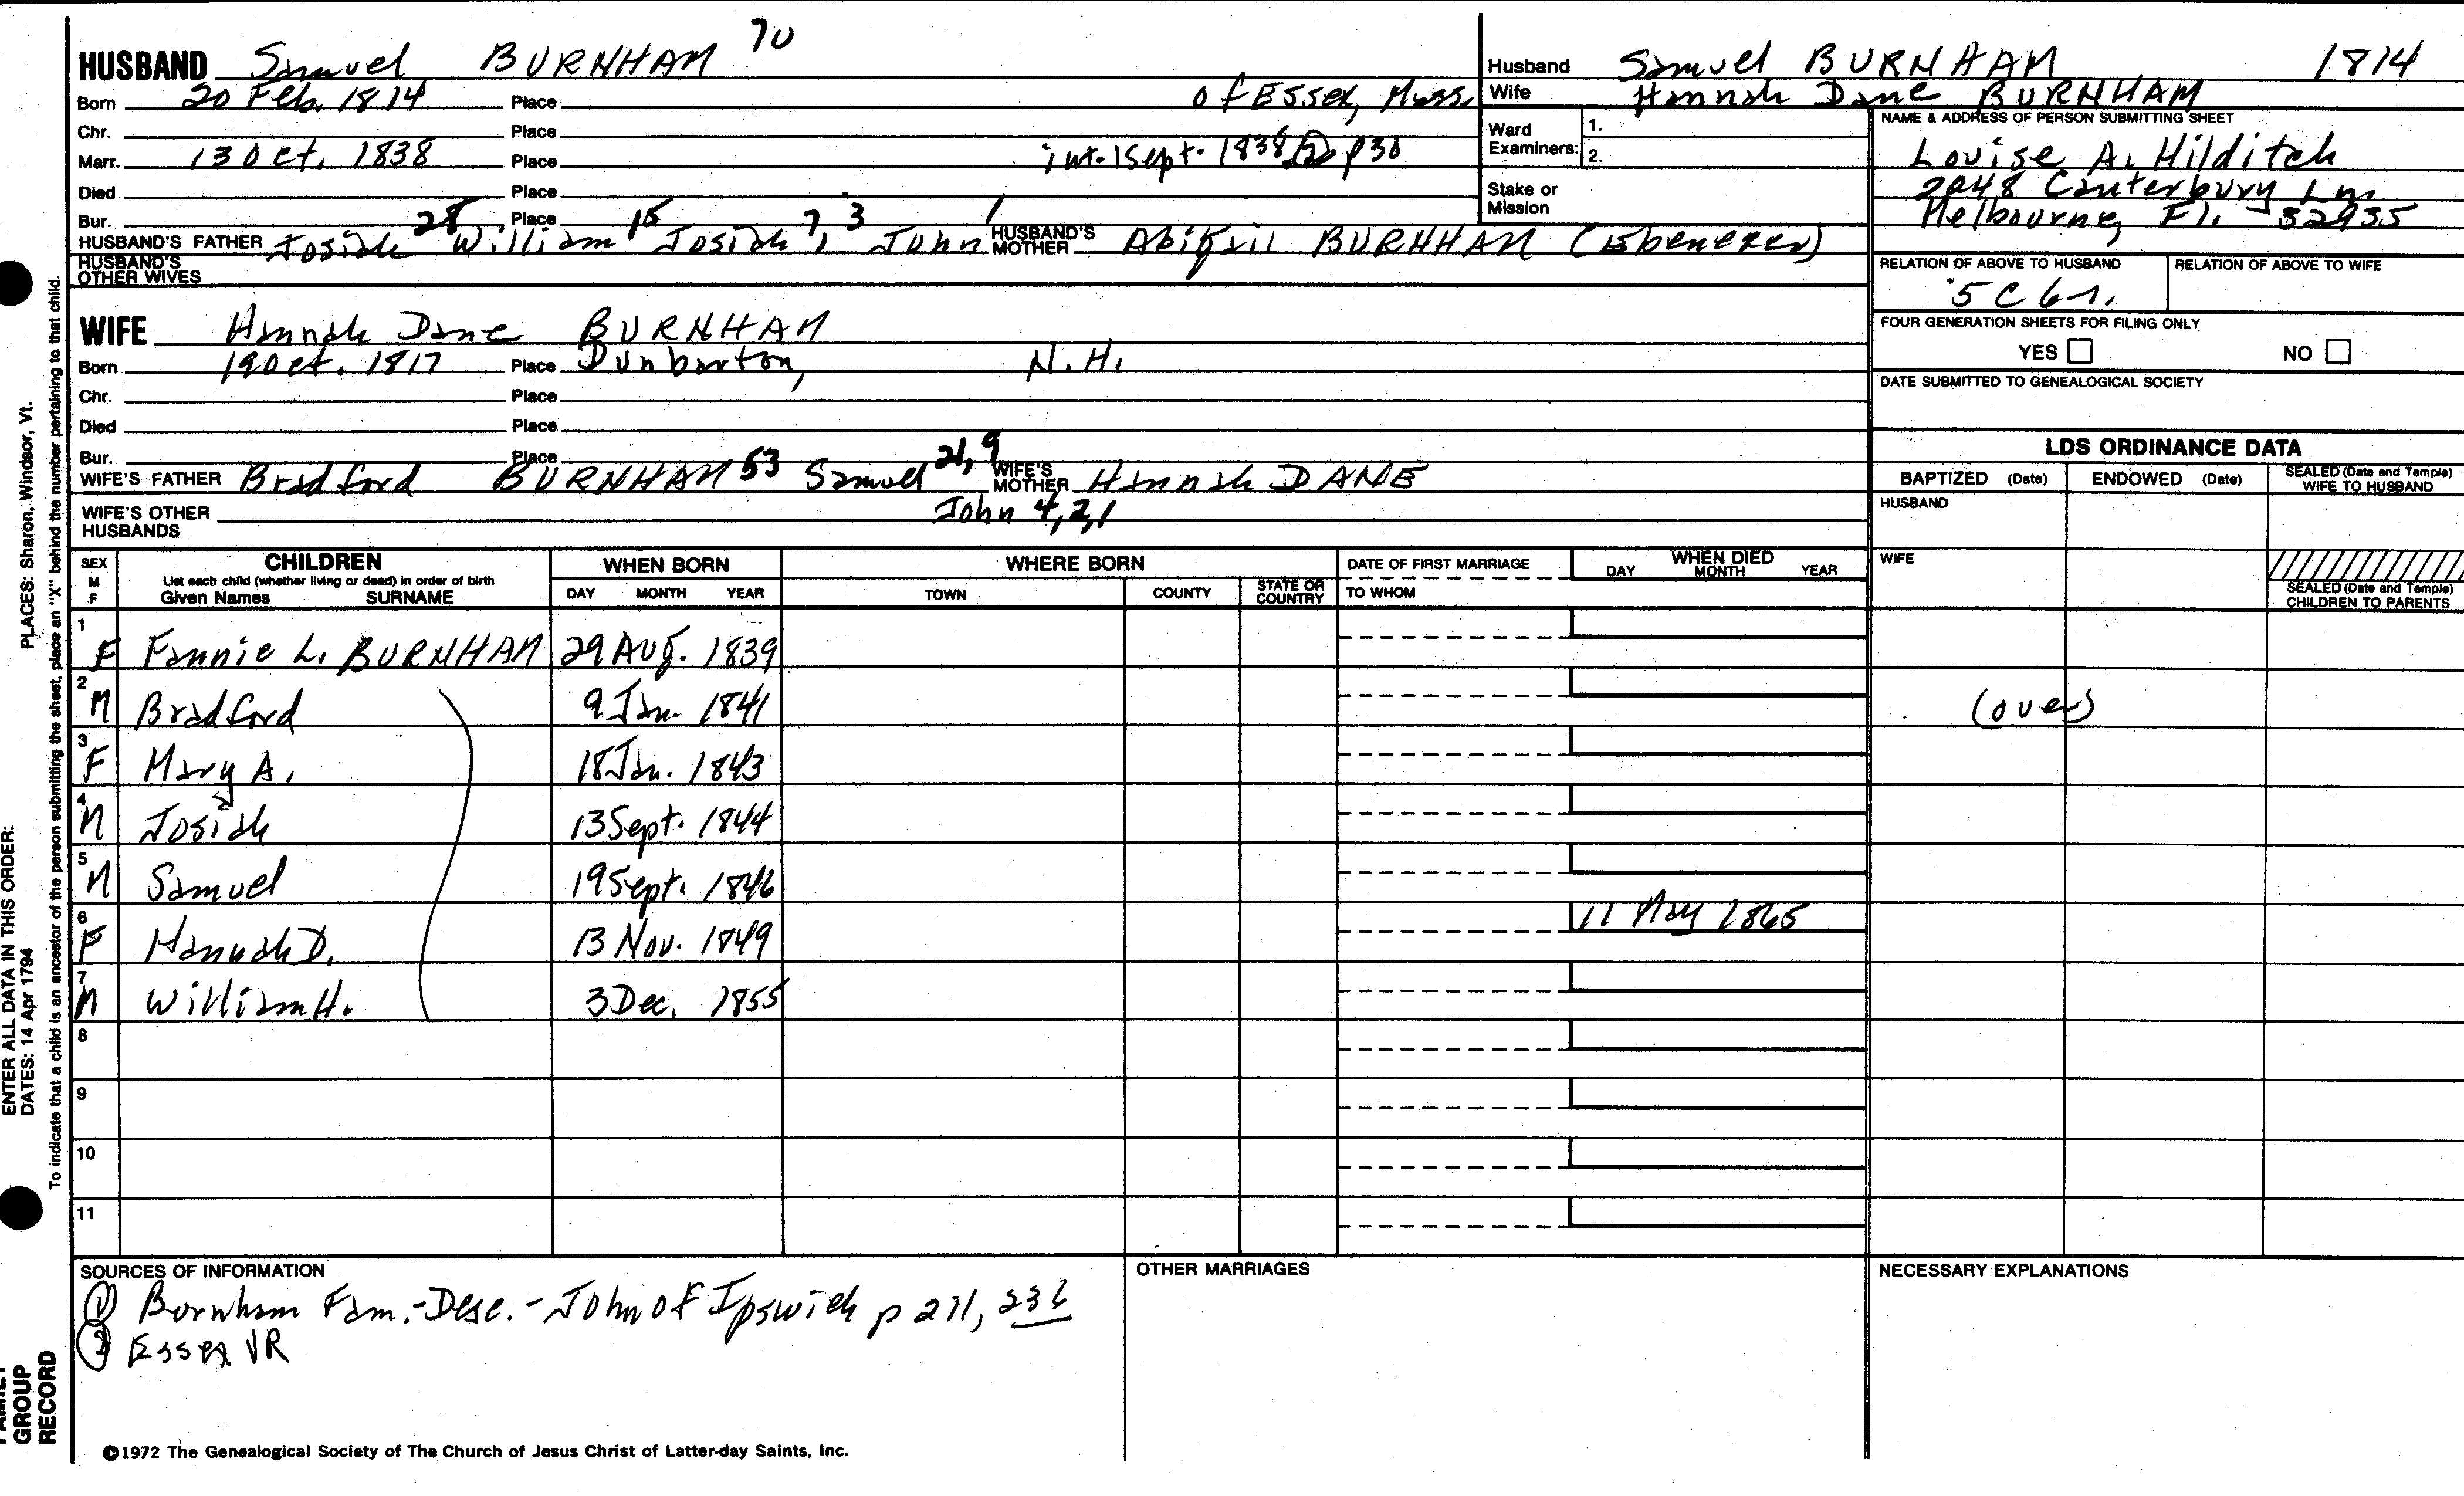 HUSBAND Samuel BURNHAM 70
Born 20 Feb. 1814 Place of Essex, Mass.
Chr. Place
Marr. 13 Oct. 1838 Place int. 1 Sept. 1838 (2) p30
Died Place
Bur. Place
HUSBAND'S FATHER Josiah 28 William 15 Josiah 7, 3 John 1 HUSBAND'S MOTHER Abigail BURNHAM (Ebenezer)
HUSBAND'S OTHER WIVES
WIFE Hannah Dane BURNHAM
Born 19 Oct. 1817 Place Dunbarton, N.H.
Chr. Place
Died Place
Bur. Place
WIFE'S FATHER Bradford BURNHAM 53 Samuel 21, 9 WIFE'S MOTHER Hannah DANE
WIFE'S OTHER HUSBANDS John 4, 2, 1
Husband Samuel BURNHAM 1814
Wife Hannah Dane BURNHAM
Ward Examiners: 1. 2.
Stake or Mission
NAME & ADDRESS OF PERSON SUBMITTING SHEET
Louise A. Hilditch
2048 Canterbury Ln
Melbourne, Fl. - 32935
RELATION OF ABOVE TO HUSBAND RELATION OF ABOVE TO WIFE
5C 6r.
FOUR GENERATION SHEETS FOR FILING ONLY
YES NO
DATE SUBMITTED TO GENEALOGICAL SOCIETY
LDS ORDINANCE DATA
BAPTIZED (Date) ENDOWED (Date) SEALED (Date and Temple) WIFE TO HUSBAND
HUSBAND
WIFE
SEALED (Date and Temple) CHILDREN TO PARENTS
SEX M F CHILDREN WHEN BORN WHERE BORN DATE OF FIRST MARRIAGE WHEN DIED
List each child (whether living or dead) in order of birth
Given Names SURNAME DAY MONTH YEAR TOWN COUNTY STATE OR COUNTRY TO WHOM DAY MONTH YEAR
1 F Fannie L. BURNHAM 29 Aug. 1839
2 M Bradford 9 Jan. 1841 (over)
3 F Mary A. 18 Jan. 1843
4 M Josiah 13 Sept. 1844
5 M Samuel 19 Sept. 1846
6 F Hannah D. 13 Nov. 1849 11 May 1865
7 M William H. 3 Dec. 1855
8
9
10
11
SOURCES OF INFORMATION
(1) Burnham Fam.-Desc.-John of Ipswich p 211, 236
(2) Essex VR
OTHER MARRIAGES
NECESSARY EXPLANATIONS
©1972 The Genealogical Society of The Church of Jesus Christ of Latter-day Saints, Inc.
ENTER ALL DATA IN THIS ORDER:
DATES: 14 Apr 1794 PLACES: Sharon, Windsor, Vt.
To indicate that a child is an ancestor of the person submitting the sheet, place an "X" behind the number pertaining to that child.
FAMILY
GROUP
RECORD